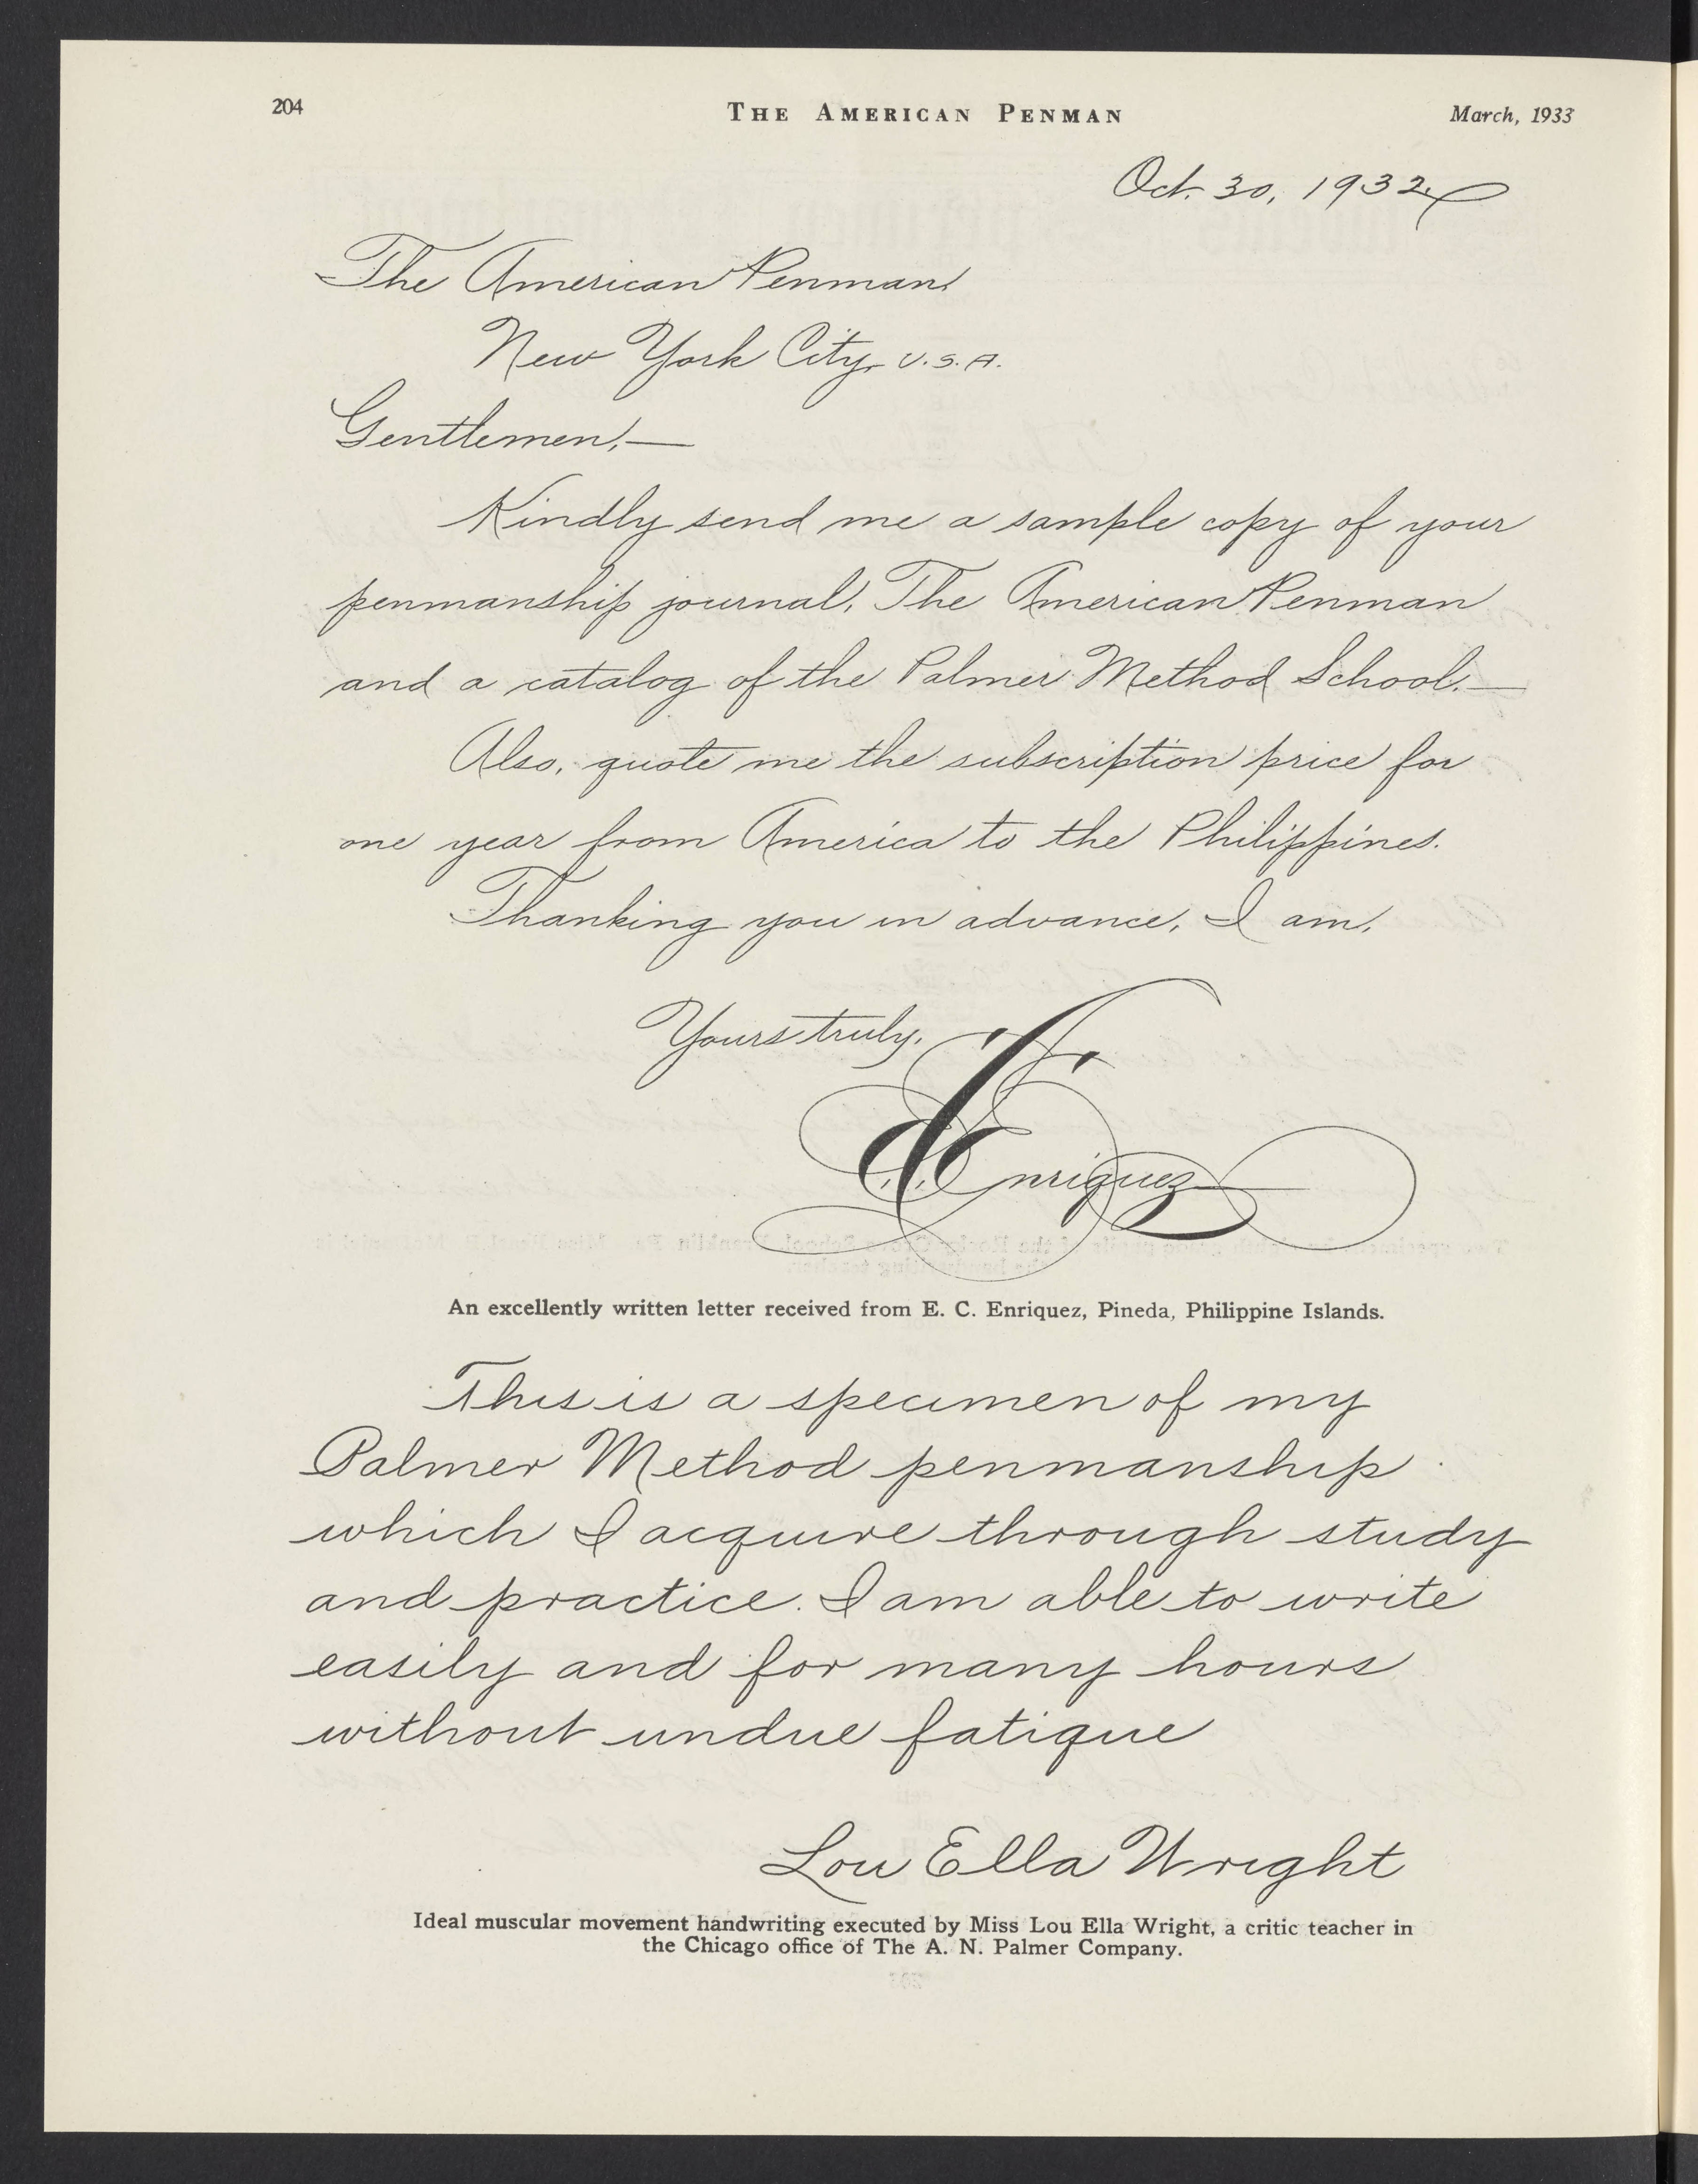 204
THE AMERICAN PENMAN
March, 1933
Oct. 30, 1932.
The American Penman,
New York City, U.S.A.
Gentlemen,—
Kindly send me a sample copy of your
penmanship journal, The American Penman
and a catalog of the Palmer Method School.—
Also, quote me the subscription price for
one year from America to the Philippines.
Thanking you in advance, I am,
Yours truly,
E. C. Enriquez
An excellently written letter received from E. C. Enriquez, Pineda, Philippine Islands.
This is a specimen of my
Palmer Method penmanship
which I acquire through study
and practice. I am able to write
easily and for many hours
without undue fatigue
Lou Ella Wright
Ideal muscular movement handwriting executed by Miss Lou Ella Wright, a critic teacher in
the Chicago office of The A. N. Palmer Company.